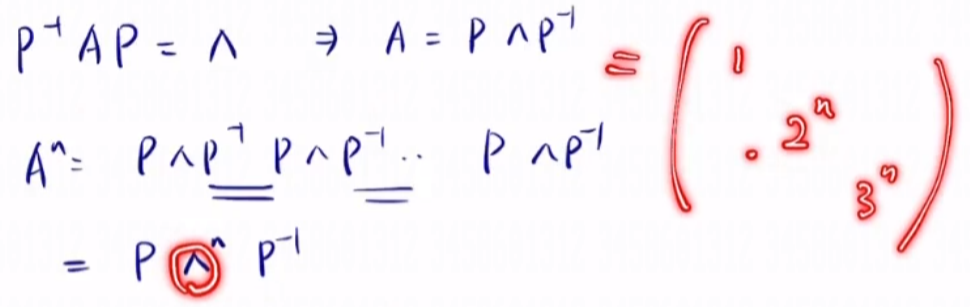 P⁻¹AP = Λ ⇒ A = PΛP⁻¹
Aⁿ = PΛP⁻¹ PΛP⁻¹ ·· PΛP⁻¹
= PΛⁿP⁻¹
= ( 1
· 2ⁿ
3ⁿ )